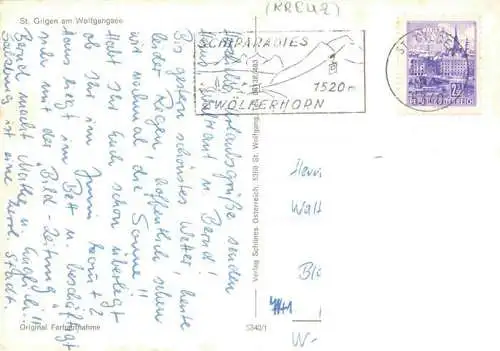 (KREUZ)
St. Gilgen am Wolfgangsee
SCHIPARADIES
1520 m
ZWÖLFERHORN
Herzliche Urlaubsgrüße senden
Hans, Waltraut u. Bernd!
Bis gestern schönstes Wetter, heute
leider Regen! Hoffentlich scheint
uns nochmal die Sonne!!
Habt Ihr Euch schon überlegt
ob Ihr im Juni kommt?
Hans liegt im Bett u. beschäftigt
sich mit der "Bild-Zeitung".
Bernd macht Mathe u. Englisch!!
Salzburg ist eine herrl. Stadt.
Verlag Schöning, Österreich, 5360 St. Wolfgang
Walt
W-
Original Farbaufnahme
5340/1